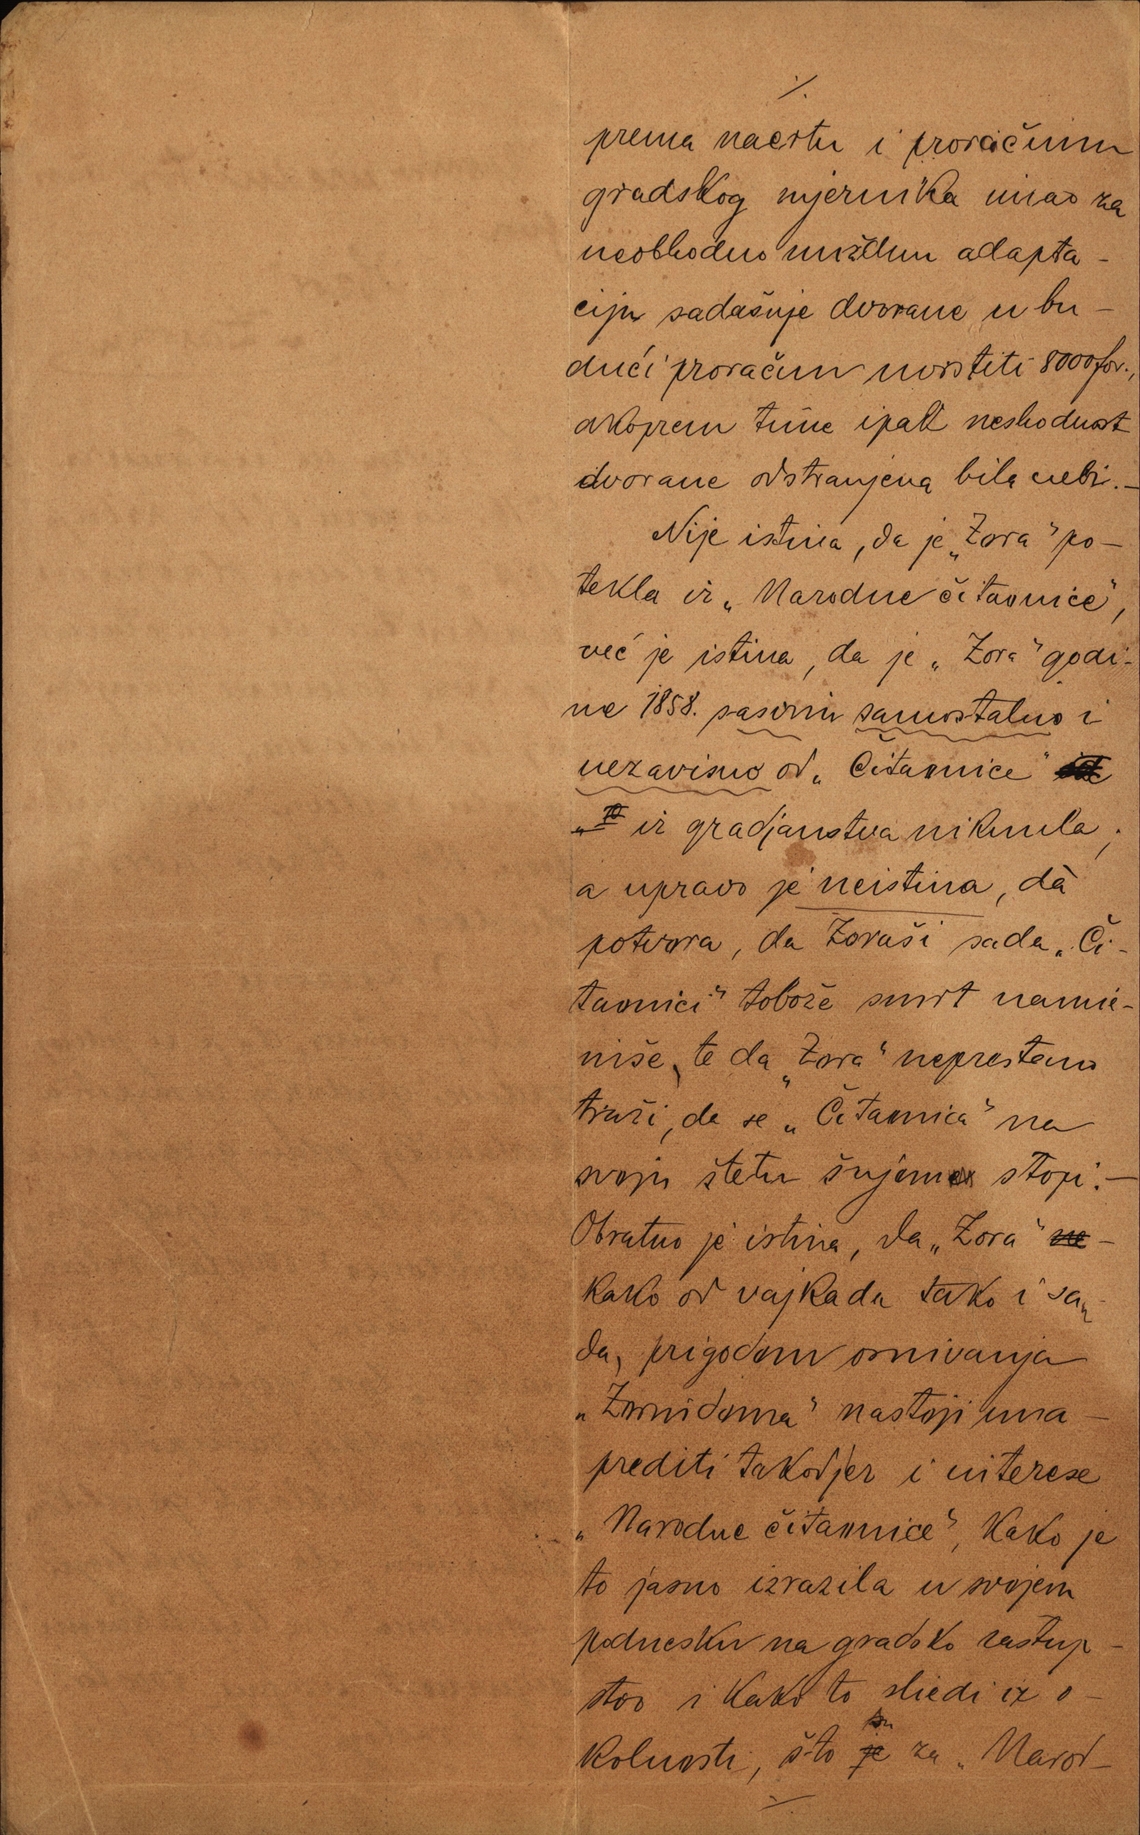 ./.
prema nacrtu i proračunu
gradskog mjernika imao za
neobhodno nuždnu adapta-
ciju sadašnje dvorane u bu-
dući proračun uvrstiti 8000 for.,
akoprem time ipak neshodnost
dvorane odstranjena bila nebi. –
Nije istina, da je „Zora“ po-
tekla iz „Narodne čitaonice“,
već je istina, da je „Zora“ godi-
ne 1858. sasvim samostalno i
nezavisno od „Čitaonice“
iz gradjanstva niknula;
a upravo je neistina, dà
potvora, da Zoraši sada „Či-
taonici“ tobože smrt namie-
niše, te da „Zora“ neprestano
traži, da se „Čitaonica“ na
svoju štetu šnjome stopi. –
Obratno je istina, da „Zora“ –
kako od vajkada tako i sa-
da, prigodom osnivanja
„Zorinidoma“ nastoji una-
prediti takodjer i interese
„Narodne čitaonice“, kako je
to jasno izrazila u svojem
podnesku na gradsko zastup-
stvo i kako to sliedi iz o-
kolnosti, što su za „Narod-